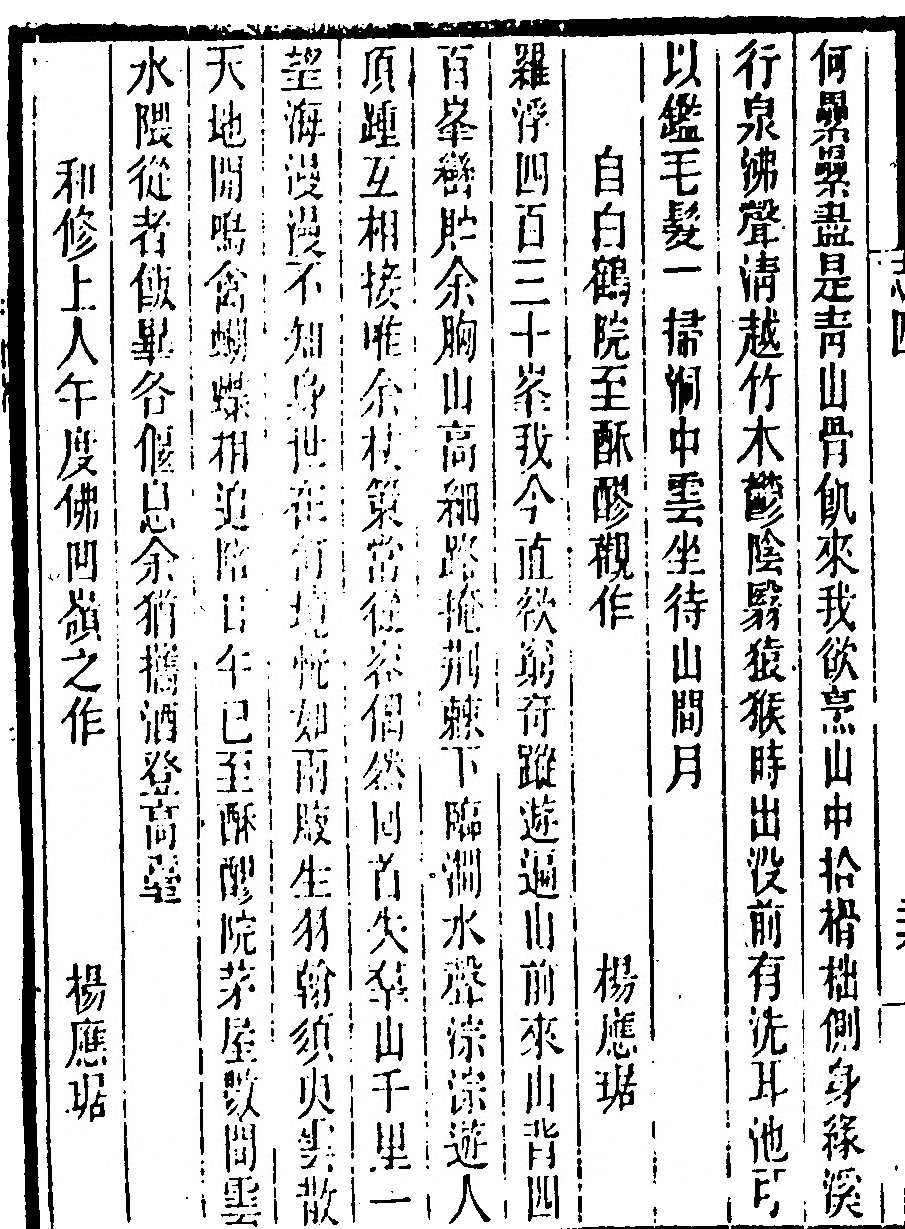 何纍纍盡是青山骨飢來我欲烹山中拾榾柮側身緣溪
行泉沸聲清越竹木鬱陰翳猿猴時出没前有洗耳池可
以鑑毛髮一掃澗中雲坐待山間月
自白鶴院至酥醪觀作 楊應琚
羅浮四百三十峯我今直欲窮奇蹤遊遍山前來山背四
百峯巒貯余胸山高細路掩荆棘下臨澗水聲淙淙遊人
頂踵互相接唯余杖策常從容偶然回首失羣山千里一
望海漫漫不知身世在何境恍如兩腋生羽翰須臾雲散
天地開鳴禽蝴蝶相追陪日午已至酥醪院茅屋數間雲
水隈從者飯畢各偃息余猶攜酒登高臺
和修上人午度佛凹嶺之作 楊應琚
志四